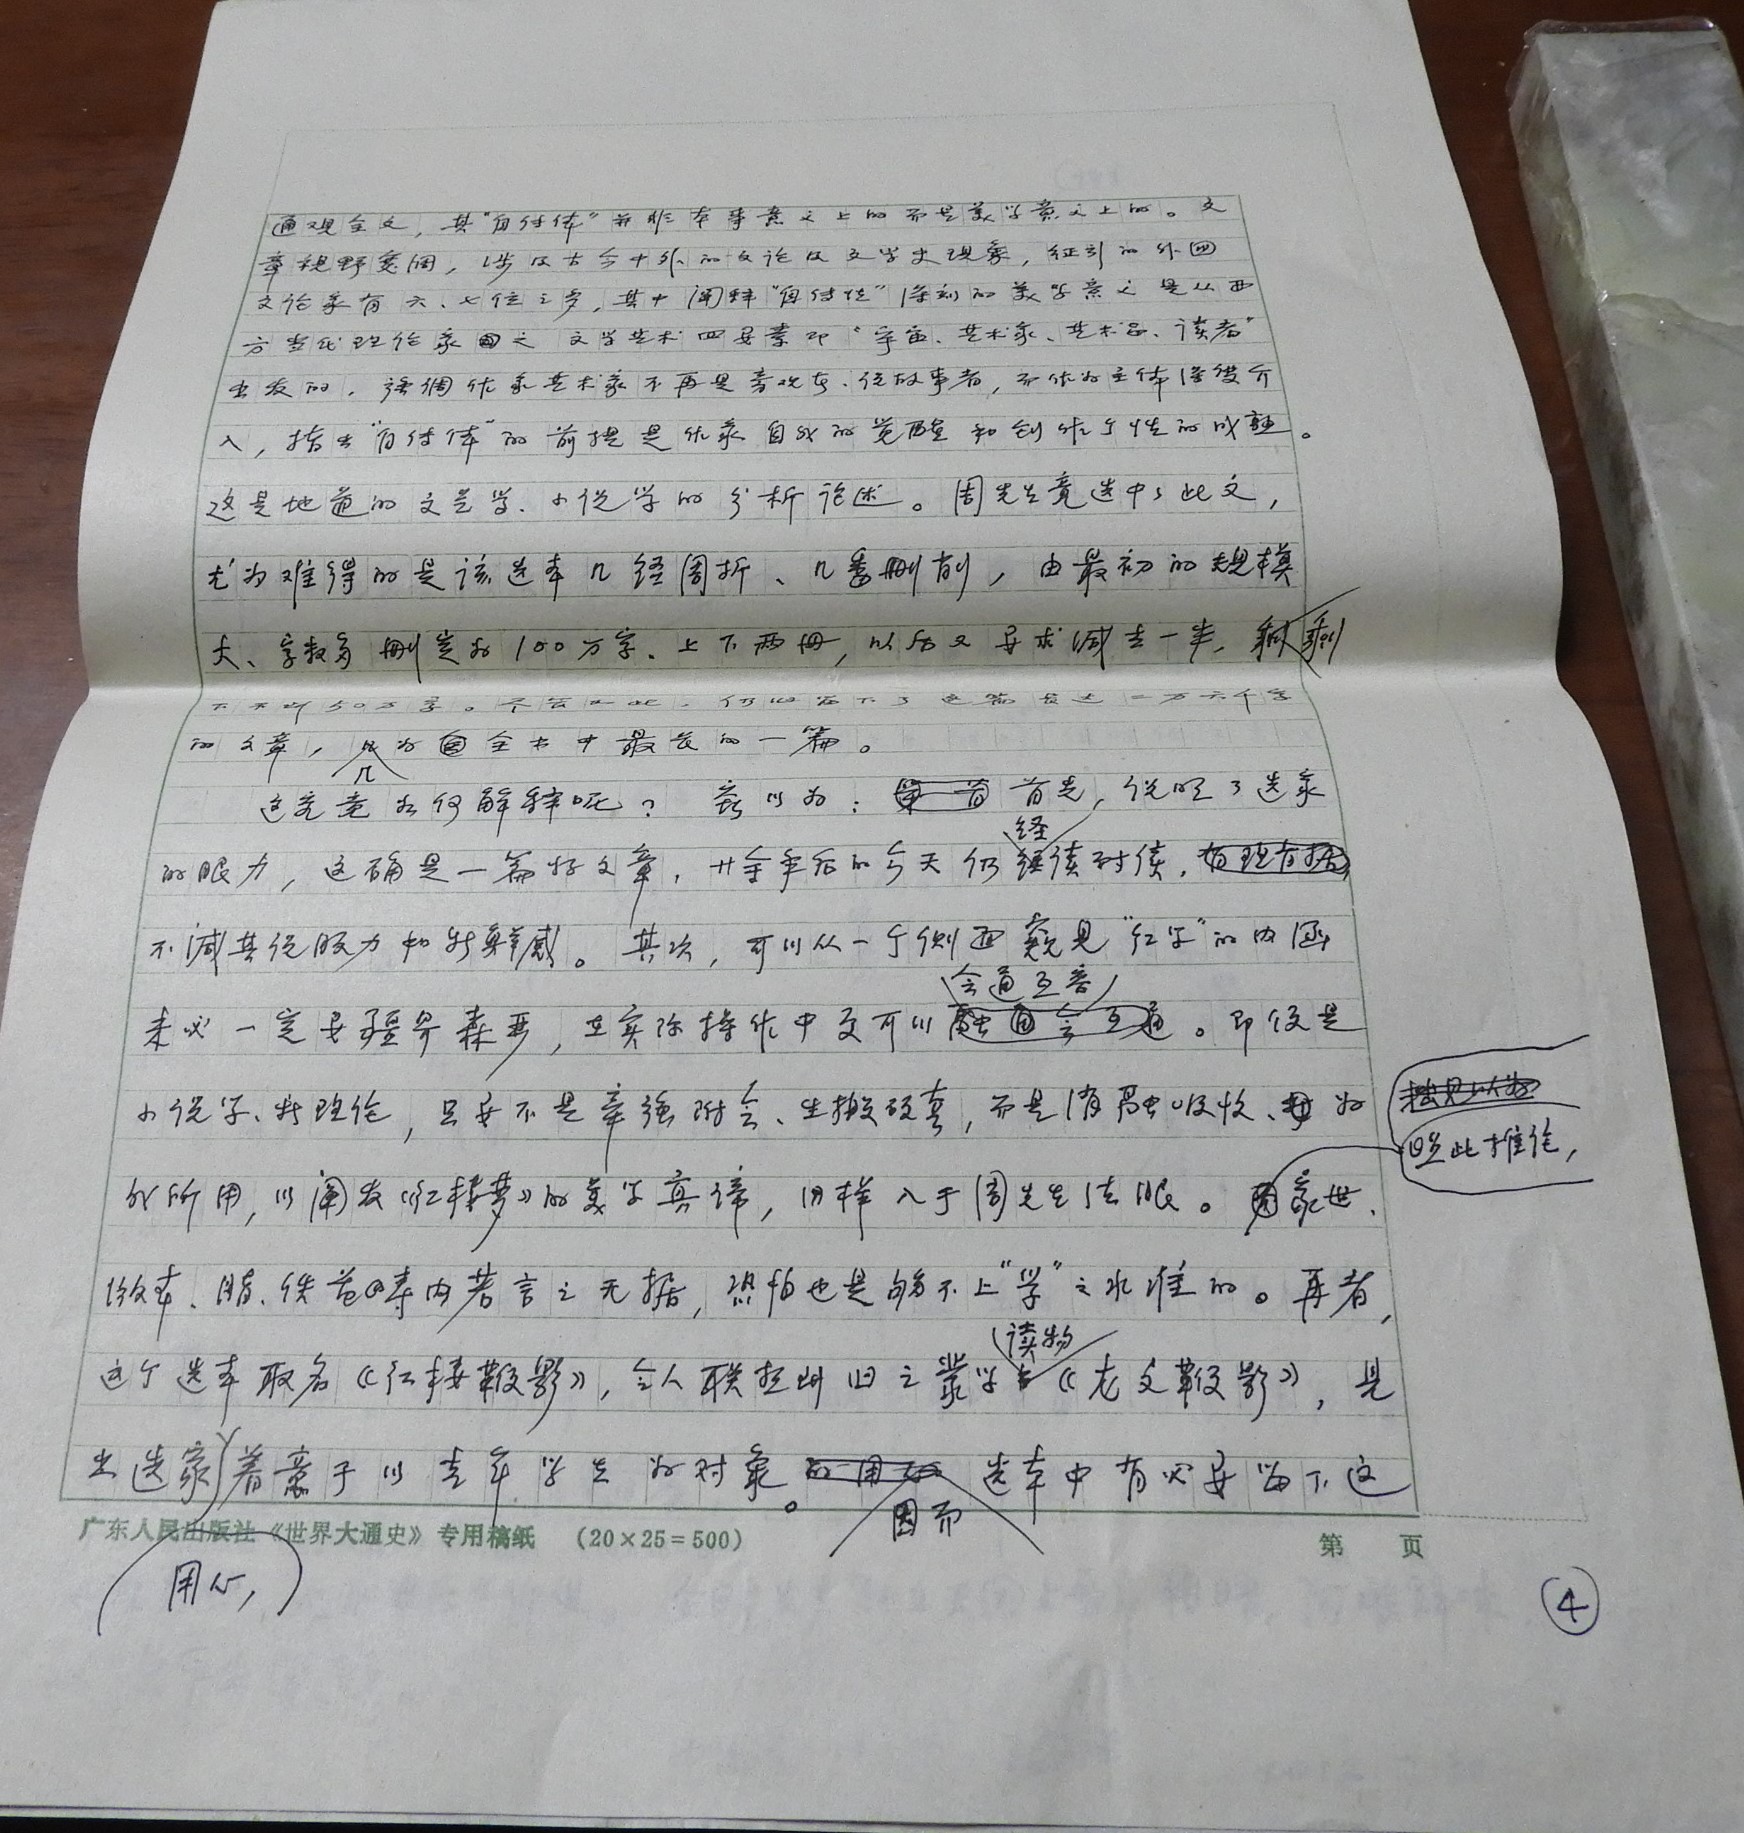 通观全文，其“自传体”并非本事意义上的而是美学意义上的。文
章视野宽阔，涉及古今中外的文论及文学史现象，征引的外国
文论家有六、七位之多，其中阐释“自传性”深刻的美学意义是从西
方当代理论家之文学艺术四要素即“宇宙、艺术家、艺术品、读者”
出发的，强调作家艺术家不再是旁观者、说故事者，而作为主体深度介
入，指出“自传体”的前提是作家自我的觉醒和创作个性的成熟。
这是地道的文艺学、小说学的分析论述。周先生竟选中了此文，
尤为难得的是该选本几经周折、几番删削，由最初的规模
大、字数多删定为100万字、上下两册，以后又要求减去一半，剩
下不到50万字。尽管如此，仍旧留下了这篇长达二万六千字
的文章，几成为全书中最长的一篇。
这究竟如何解释呢？我以为：首先，说明了选家
的眼力，这确是一篇好文章，廿余年后的今天仍经读耐读，
不减其说服力和新鲜感。其次，可以从一个侧面窥见“红学”的内涵
会通互容
未必一定要疆界森严，在实际操作中更可以。即使是
小说学、新理论，只要不是牵强附会、生搬硬套，而是消融吸收、为
照此推论，
我所用，以阐发《红楼梦》的美学真谛，同样入于周先生法眼。家世、
版本、脂、佚若言之无据，恐怕也是够不上“学”之水准的。再者，
读物
这个选本取名《红楼鞭影》，令人联想到旧之蒙学《龙文鞭影》，见
出选家着意于以青年学生为对象。选本中有必要留下这
因而
广东人民出版社《世界大通史》专用稿纸 （20×25=500） 第 页
用心，
④